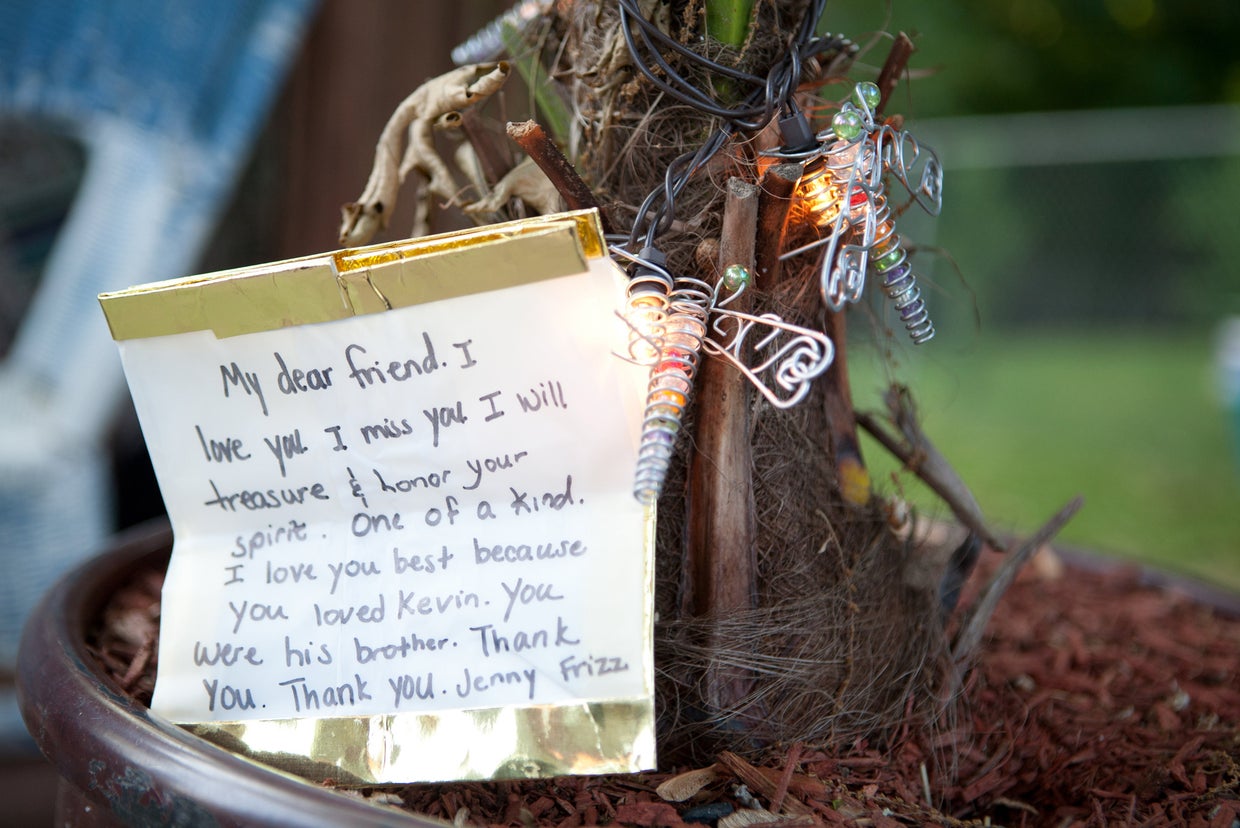 My dear friend. I
love you. I miss you. I will
treasure & honor your
spirit. One of a kind.
I love you best because
you loved Kevin. You
were his brother. Thank
You. Thank you. Jenny Frizz.